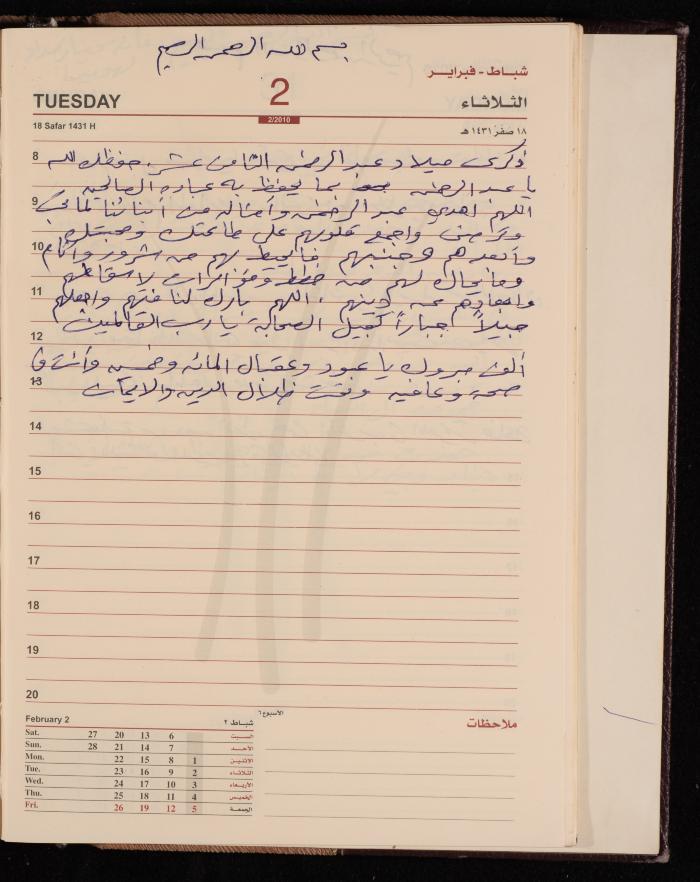 بسم الله الرحمن الرحيم
شباط - فبراير
TUESDAY
2
الثلاثاء
18 Safar 1431 H
2/2010
١٨ صفر ١٤٣١ هـ
8
ذكرى ميلاد عبد الرحمن الثامن عشر. حفظك الله
يا عبد الرحمن بما يحفظ به عباده الصالحين
9
اللهم اهدي عبد الرحمن وأمثاله من أبنائنا لما تحب
وترضى واجمع قلوبهم على طاعتك ومحبتك
10
وأبعدهم وجنبهم ما يحيط بهم من شرور وآثام
وما يحاك لهم من خطط ومؤامرات لاسقاطهم
11
وابعادهم عن دينهم ، اللهم بارك لنا فيهم واجعلهم
جيلاً جباراً كجيل الصحابة يا رب العالمين
12
ألف مبروك يا عبود وعقبال المائه وخمسين وأنت في
13
صحة وعافيه وتحت ظلال الدين والايمان
14
15
16
17
18
19
20
February 2
شباط ٢
Sat. 27 20 13 6 السبت
Sun. 28 21 14 7 الأحد
Mon. 22 15 8 1 الاثنين
Tue. 23 16 9 2 الثلاثاء
Wed. 24 17 10 3 الأربعاء
Thu. 25 18 11 4 الخميس
Fri. 26 19 12 5 الجمعة
الأسبوع ٦
ملاحظات